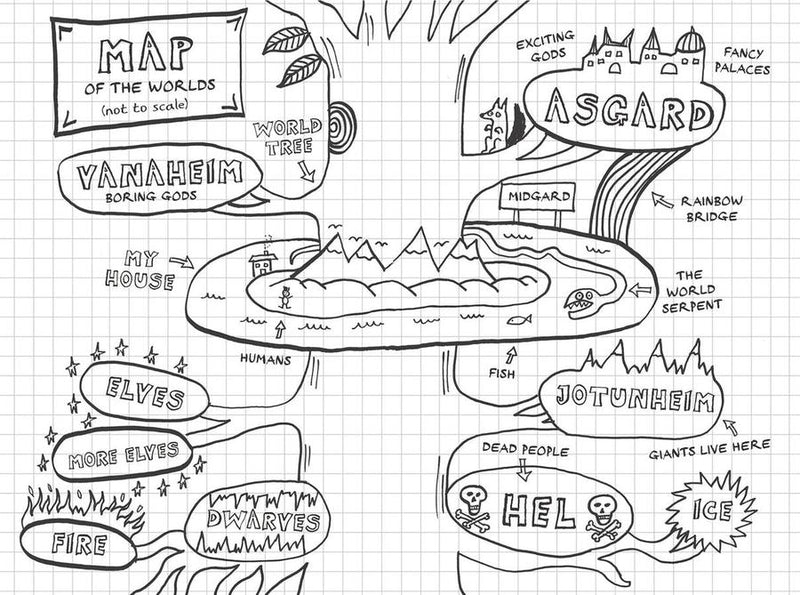 MAP
OF THE WORLDS
(not to scale)
EXCITING
GODS
FANCY
PALACES
ASGARD
WORLD
TREE
VANAHEIM
BORING GODS
MIDGARD
RAINBOW
BRIDGE
MY
HOUSE
THE
WORLD
SERPENT
HUMANS
FISH
ELVES
JOTUNHEIM
MORE ELVES
GIANTS LIVE HERE
DEAD PEOPLE
DWARVES
HEL
ICE
FIRE